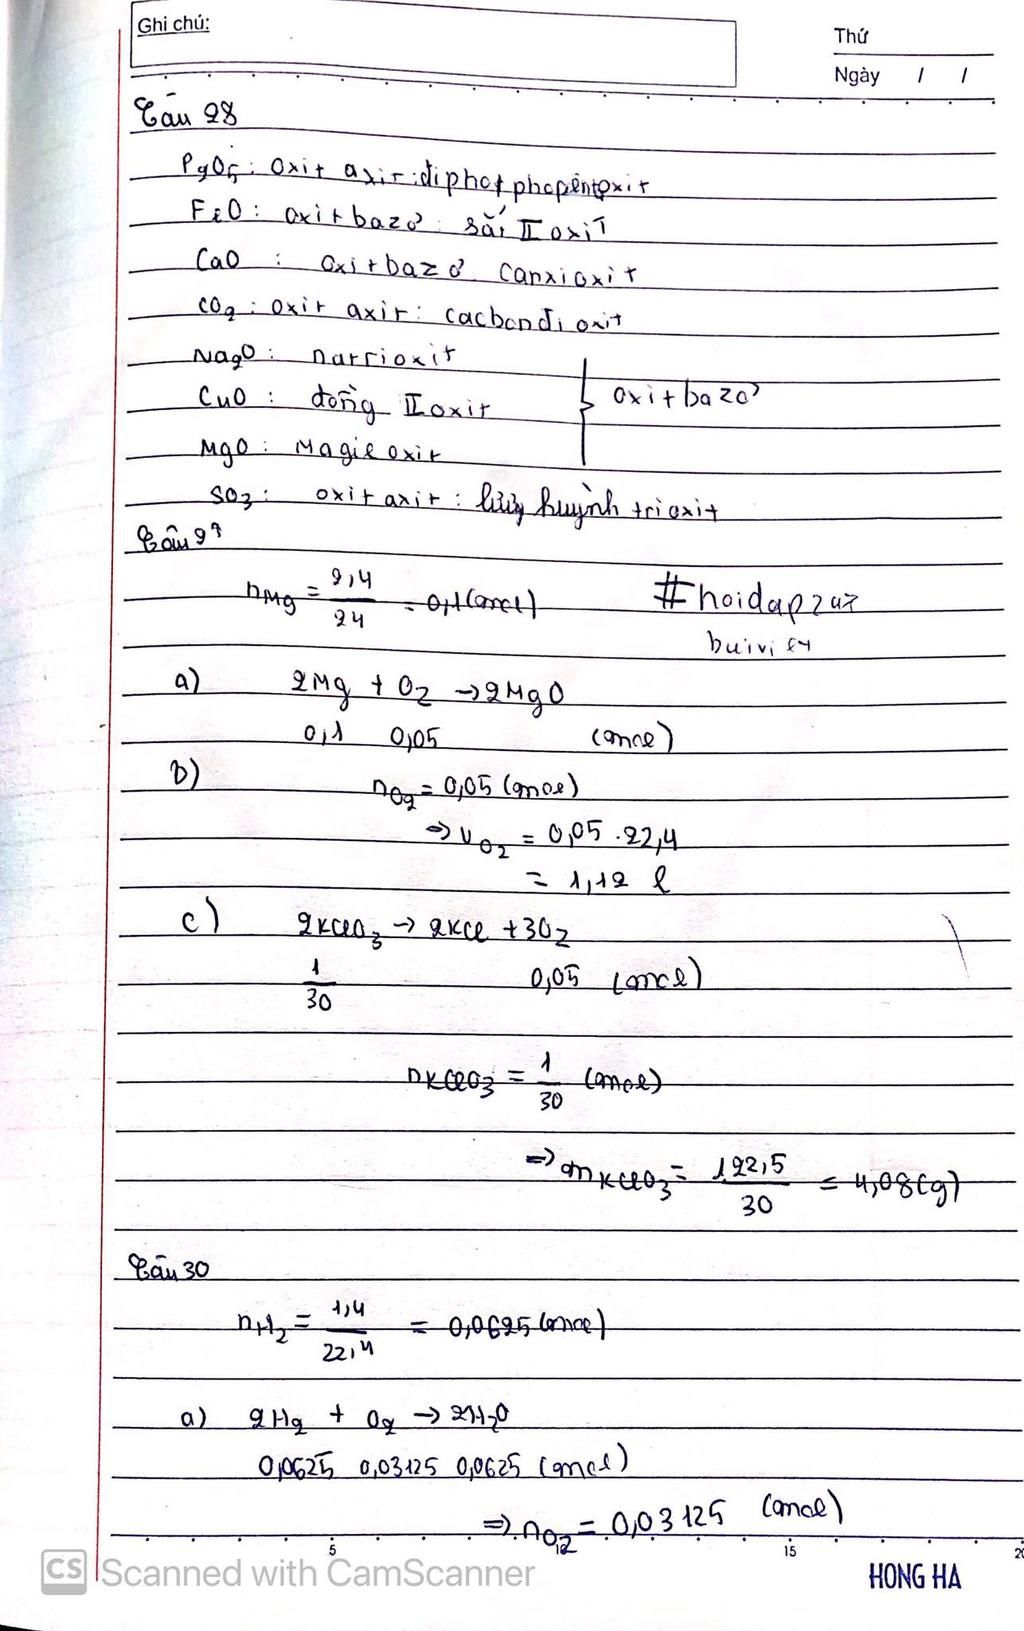 Ghi chú:
Thứ
Ngày / /
Câu 28
P2O5: Oxit axit: điphotphopentoxit
FeO: oxit bazơ: sắt II oxit
CaO : Oxit bazơ canxi oxit
CO2: oxit axit: cacbonđioxit
Na2O: natrioxit
CuO : đồng II oxit
oxit bazơ
MgO: Magie oxit
SO3: oxit axit: lưu huỳnh trioxit
Câu 29
nMg = 2,4/24 = 0,1 (mol)
#hoidap247
buivi
a) 2Mg + O2 → 2MgO
0,1 0,05 (mol)
b) nO2 = 0,05 (mol)
⇒ VO2 = 0,05 . 22,4
= 1,12 l
c) 2KClO3 → 2KCl + 3O2
1/30 0,05 (mol)
nKClO3 = 1/30 (mol)
⇒ mKClO3 = 122,5/30 = 4,08(g)
Câu 30
nH2 = 1,4/22,4 = 0,0625 (mol)
a) 2H2 + O2 → 2H2O
0,0625 0,03125 0,0625 (mol)
⇒ nO2 = 0,03125 (mol)
5 10 15 20
CS Scanned with CamScanner
HONG HA